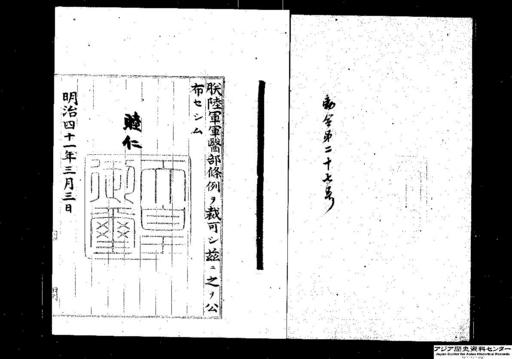 勅令第二十七号
朕陸軍軍醫部條例ヲ裁可シ茲ニ之ヲ公
布セシム
睦仁
天皇
御璽
明治四十一年三月三日
アジア歴史資料センター
Japan Center for Asian Historical Records